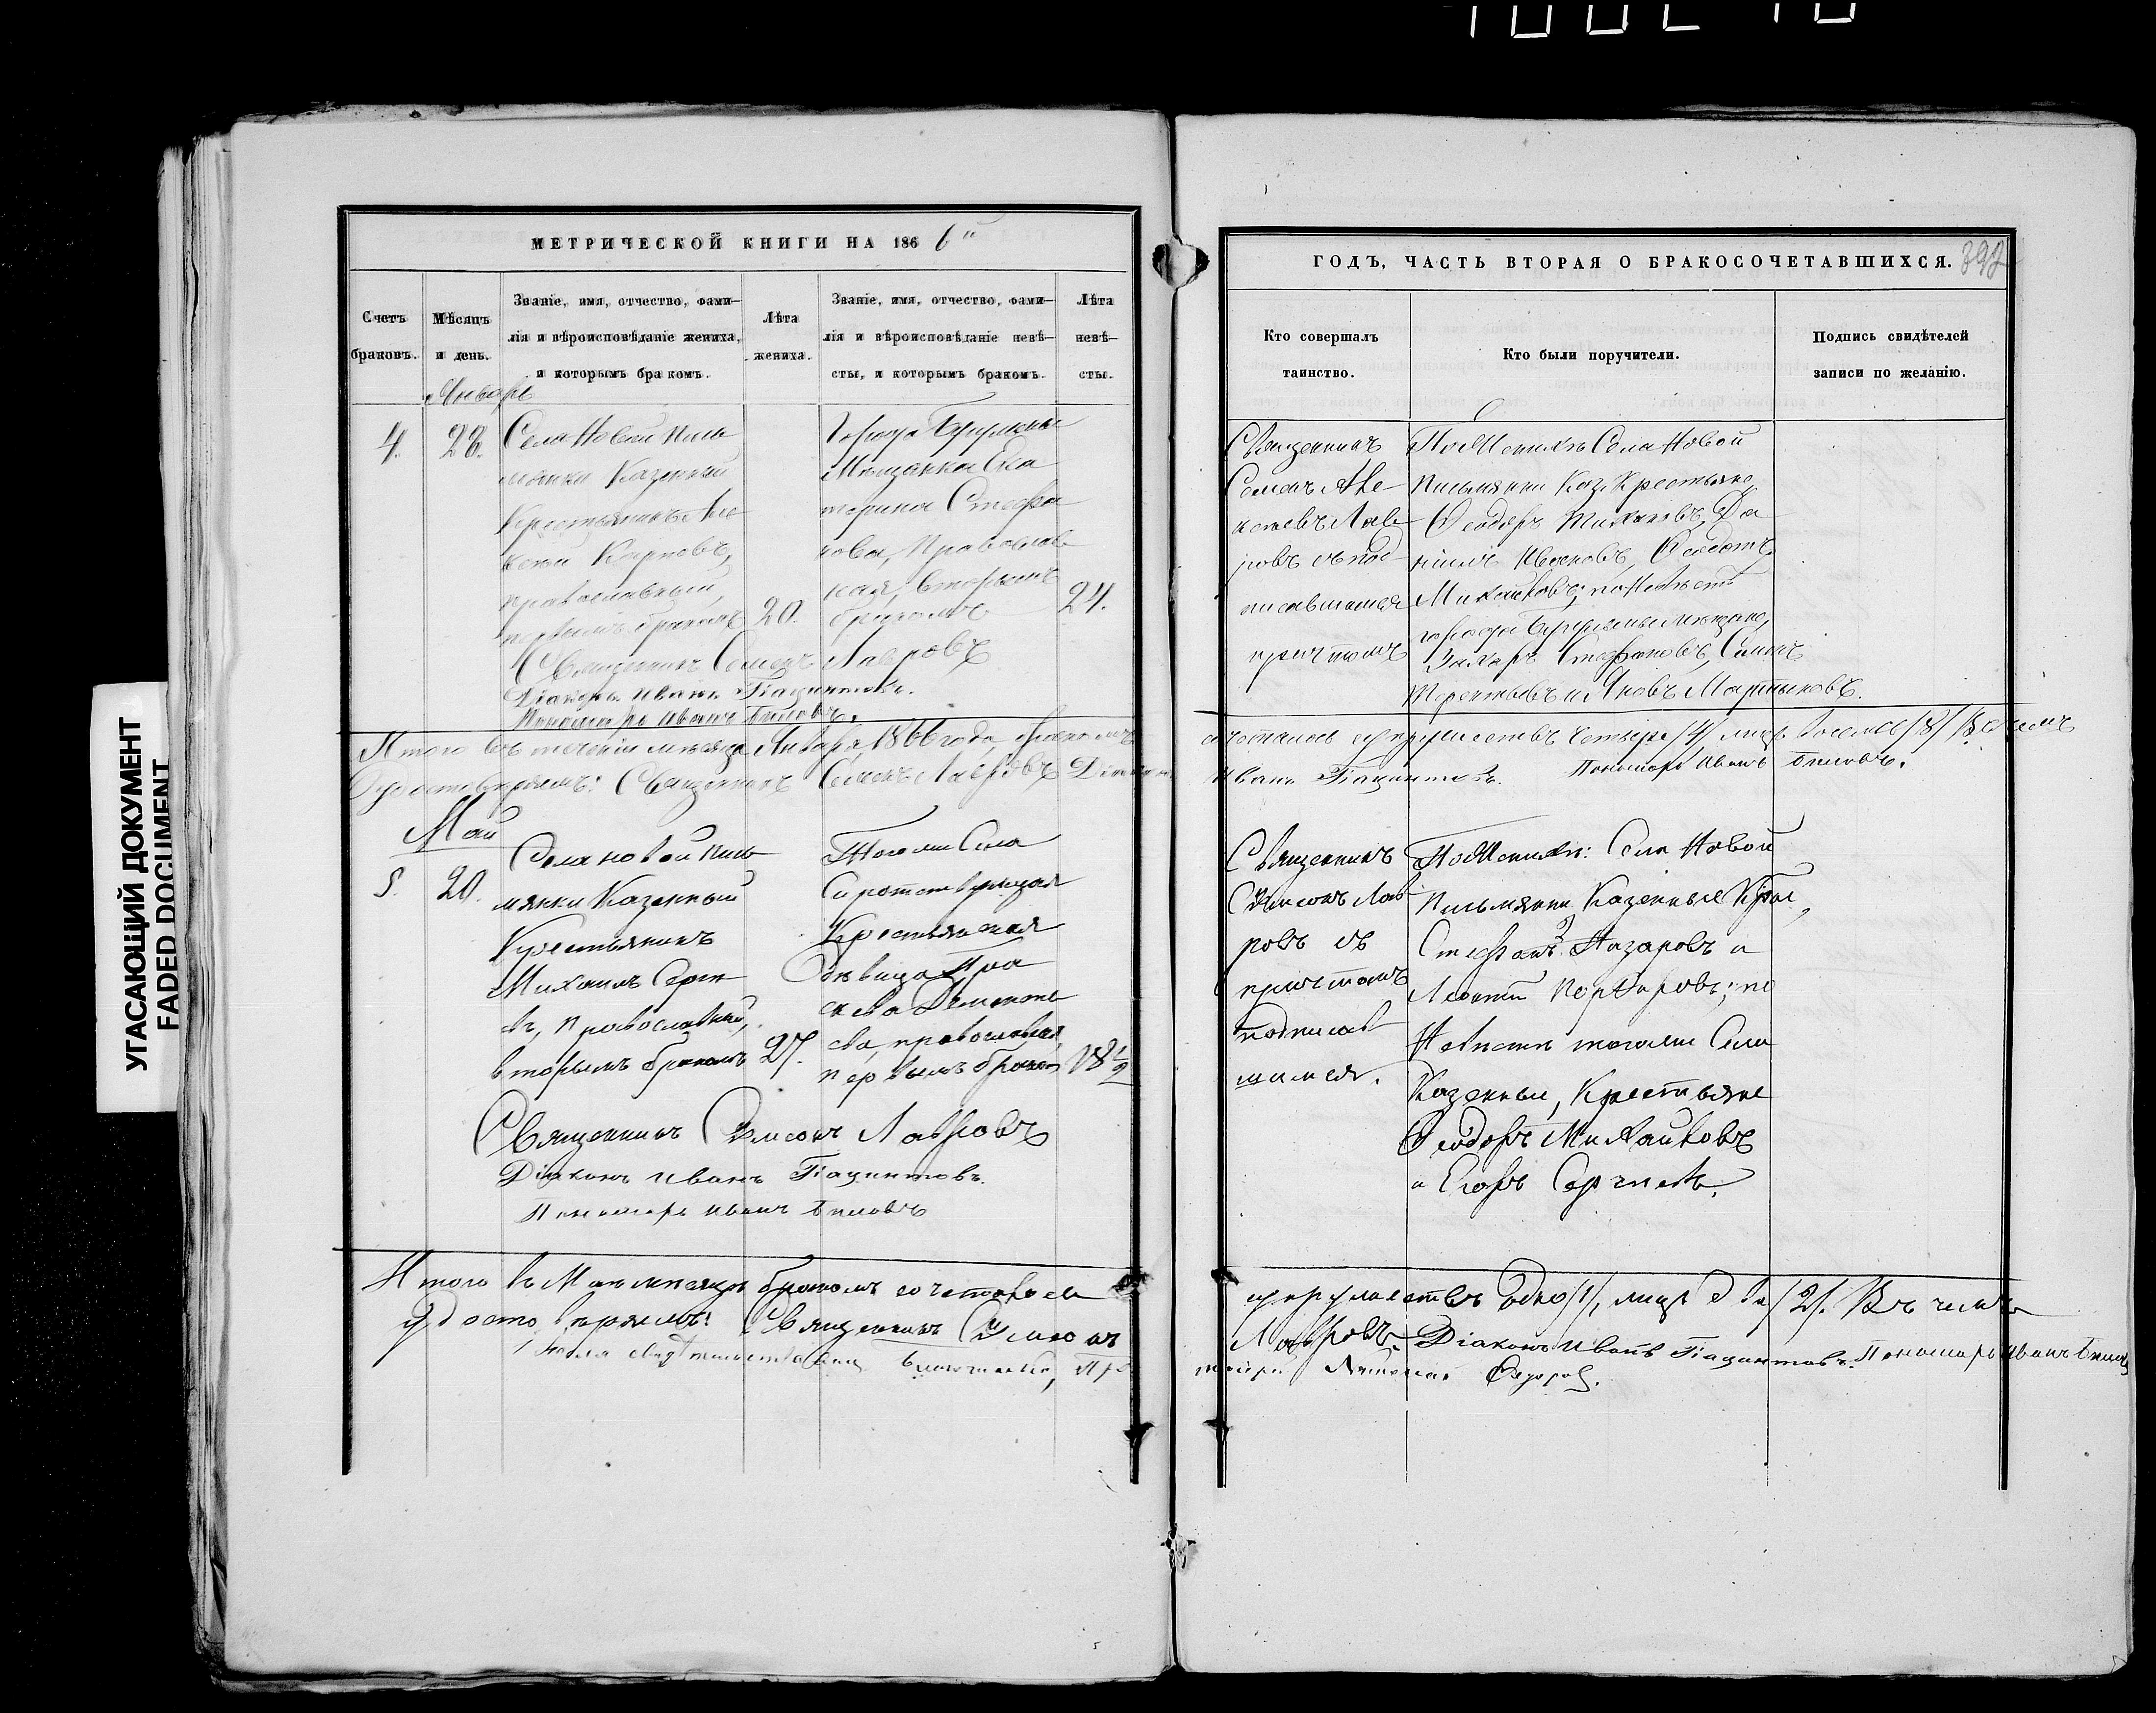 УГАСАЮЩИЙ ДОКУМЕНТ
FADED DOCUMENT
МЕТРИЧЕСКОЙ КНИГИ НА 1866й
Счетъ браковъ.
Мѣсяцъ и день.
Званіе, имя, отчество, фами-
лія и вѣроисповѣданіе жениха,
и которымъ бракомъ.
Лѣта
жениха.
Званіе, имя, отчество, фами-
лія и вѣроисповѣданіе невѣ-
сты, и которымъ бракомъ.
Лѣта
невѣ-
сты.
Январь
4.
28.
Села Новой Пись
мянки Казенный
Крестьянинъ Але
ксѣй Карповъ,
православный,
первымъ бракомъ
20.
Города Бугульмы
Мѣщанка Ека
терина Стефа
нова, Православ
ная, вторымъ
бракомъ
24.
Священникъ Симеонъ Лавровъ
Діаконъ Иванъ Гіацинтовъ.
Пономарь Иванъ Бѣловъ.
Итого въ теченіи мѣсяца Января 1866 года, бракомъ
удостовѣряемъ: Священникъ Симеонъ Лавровъ Діаконъ
Май
5.
20.
Села Новой Пись
мянки Казенный
Крестьянинъ
Михаилъ Серге
евъ, Православный,
вторымъ бракомъ
27.
Того же Села
Сиротствующая
Крестьянская
Дѣвица Пра
сковья Дементье
ва, православная,
первымъ бракомъ
18 1/2
Священникъ Симеонъ Лавровъ
Діаконъ Иванъ Гіацинтовъ.
Пономарь Иванъ Бѣловъ
Итого въ Маѣ мѣсяцѣ бракомъ сочеталось
удостовѣряемъ: Священникъ Симеонъ
ГОДЪ, ЧАСТЬ ВТОРАЯ О БРАКОСОЧЕТАВШИХСЯ.
Кто совершалъ
таинство.
Кто были поручители.
Подпись свидѣтелей
записи по желанію.
Священникъ
Лав
ровъ съ под
писавшимся
причтомъ
По Женихѣ Села Новой
Письмянки Каз. Крестьяне
Феодоръ Тихановъ, Да
ніилъ Ивановъ, Федотъ
Михайловъ; по Невѣстѣ
города Бугульмы мѣщане,
Захаръ Стефановъ, Семенъ
Терентьевъ и Яковъ Мартыновъ.
сочеталось супружествъ четыре /4/ лицъ восемь /8/ Въ чемъ
Иванъ Гіацинтовъ. Пономарь Иванъ Бѣловъ.
Священникъ
Симеонъ Лав
ровъ съ
причтомъ
подписав
шимся.
По Женихѣ: Села Новой
Письмянки Казенные Крес.,
Стефанъ Назаровъ и
Леонтій Порфировъ; по
Невѣстѣ того же Села
Казенные, Крестьяне
Феодоръ Михайловъ
и Егоръ Сергѣевъ.
супружествъ одно /1/, лицъ два /2/. Въ чемъ
Лавровъ. Діаконъ Иванъ Гіацинтовъ. Пономарь Иванъ Бѣловъ